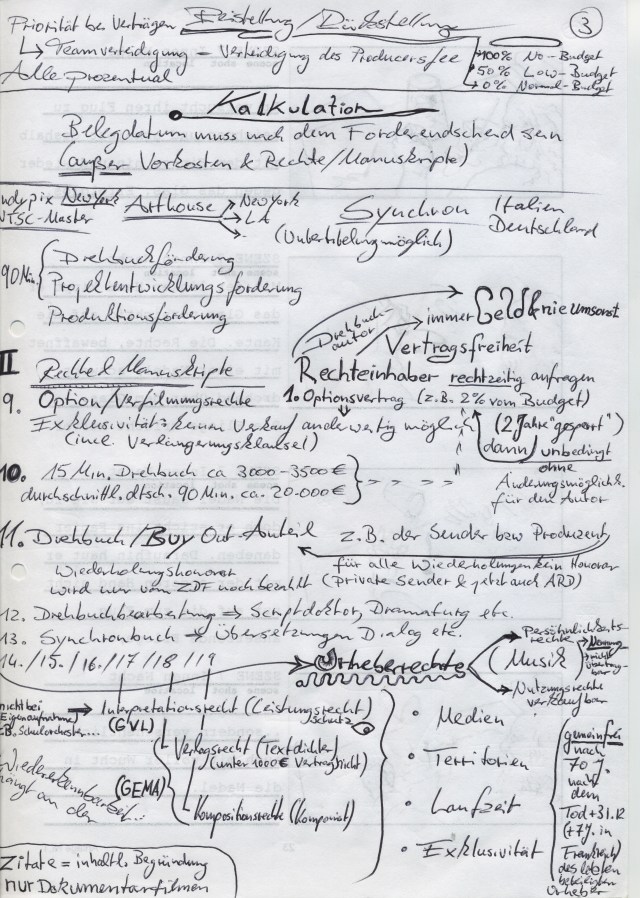 Priorität bei Verträgen Beistellung/Rückstellung ③
↳ Teamverteidigung = Verteidigung des Producersfee
→ 100% No-Budget
→ 50% Low-Budget
→ 0% Normal-Budget
Alle prozentual
• Kalkulation
Belegdatum muss nach dem Förderendscheid sein
(außer Vorkosten & Rechte/Manuskripte)
ndypix New York Arthouse → New York Synchron Italien
NTSC-Master → LA Deutschland
(Untertitelung möglich)
90 Min. { Drehbuchförderung
Projektentwicklungsförderung
Produktionsförderung
Drehbuchautor → immer Geld & nie umsonst
Vertragsfreiheit
II Rechte & Manuskripte
Rechteinhaber rechtzeitig anfragen
9. Option/Verfilmungsrechte
1. Optionsvertrag (z.B. 2% vom Budget)
Exklusivität: keinen Verkauf anderwertig möglich (2 Jahre "gesperrt")
(incl. Verlängerungsklausel)
dann unbedingt
ohne
Änderungsmöglichk.
für den Autor
10. 15 Min. Drehbuch ca 3000-3500€
durchschnittl. dtsch. 90 Min. ca. 20-000€
11. Drehbuch/Buy Out-Anteil z.B. der Sender bzw Produzent
Wiederholungshonorar für alle Wiederholungen kein Honorar
wird nur vom ZDF noch bezahlt (private Sender & jetzt auch ARD)
12. Drehbuchbearbeitung ⇒ Scriptdoktor, Dramaturg etc.
13. Synchronbuch → Übersetzungen Dialog etc.
14./15./16./17/18/19 → Urheberrechte (Musik)
Persönlichkeitsrechte → Nennung
nicht übertragbar
→ Nutzungsrechte
verkaufbar
nicht bei
Eigenaufnahme
z.B. Schulorchester...
→ Interpretationsrecht (Leistungsrecht)
schutz
(GVL)
Verlagsrecht (Textdichter)
(unter 1000€ Vertragsricht)
(GEMA)
Kompositionsrechte (Komponist)
Wiedererkennbarkeit
hängt an der
• Medien
• Territorien
• Laufzeit
• Exklusivität
gemeinfrei
nach
70 J.
nach
dem
Tod + 31.12
(+7J. in
Frankreich)
des letzten
beteiligten
Urheber
Zitate = inhaltl. Begründung
nur Dokumentarfilmen